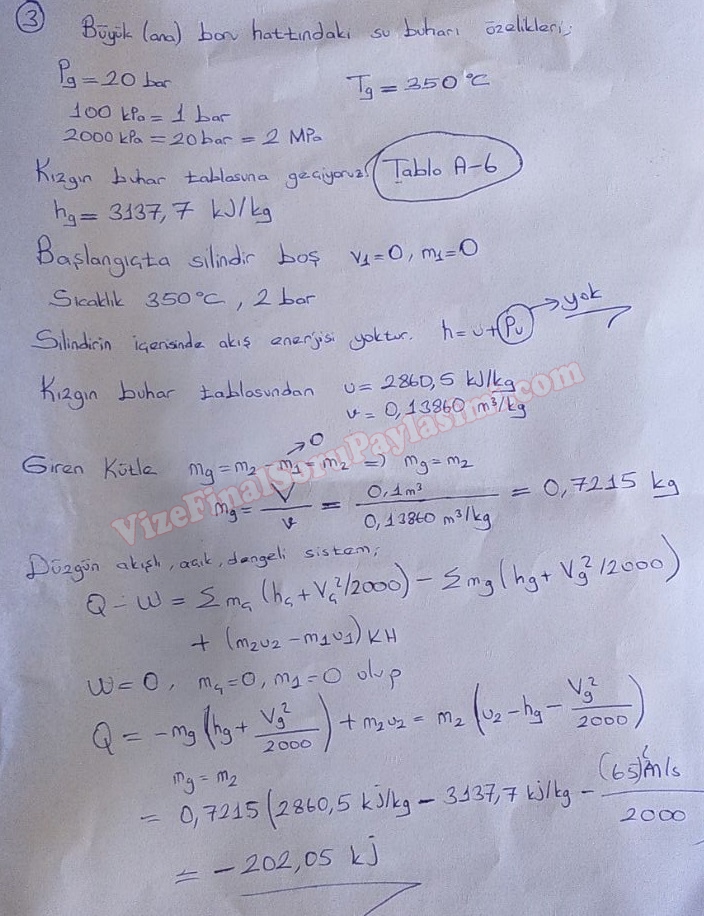 3
Büyük (ana) boru hattındaki su buharı özelikleri;
Pg = 20 bar Tg = 350 °C
100 kPa = 1 bar
2000 kPa = 20 bar = 2 MPa
Kızgın buhar tablosuna geçiyoruz! Tablo A-6
hg = 3137,7 kJ/kg
Başlangıçta silindir boş V1=0, m1=0
Sıcaklık 350°C, 2 bar
Silindirin içerisinde akış enerjisi yoktur. h=u+Pv → yok
Kızgın buhar tablosundan u= 2860,5 kJ/kg
v= 0,13860 m³/kg
VizeFinalSoruPaylasimi.com
Giren Kütle mg=m2 m1→0=m2 => mg=m2
mg = V/v = 0,1m³/0,13860 m³/kg = 0,7215 kg
Düzgün akışlı, açık, dengeli sistem;
Q-W = Σmç (hç+Vç²/2000) - Σmg (hg+Vg²/2000)
+ (m2u2-m1u1)KH
W=0, mç=0, m1=0 olup
Q = -mg (hg + Vg²/2000) + m2u2 = m2 (u2-hg- Vg²/2000)
mg = m2
= 0,7215 (2860,5 kJ/kg - 3137,7 kJ/kg - (65)² m/s/2000
= -202,05 kJ